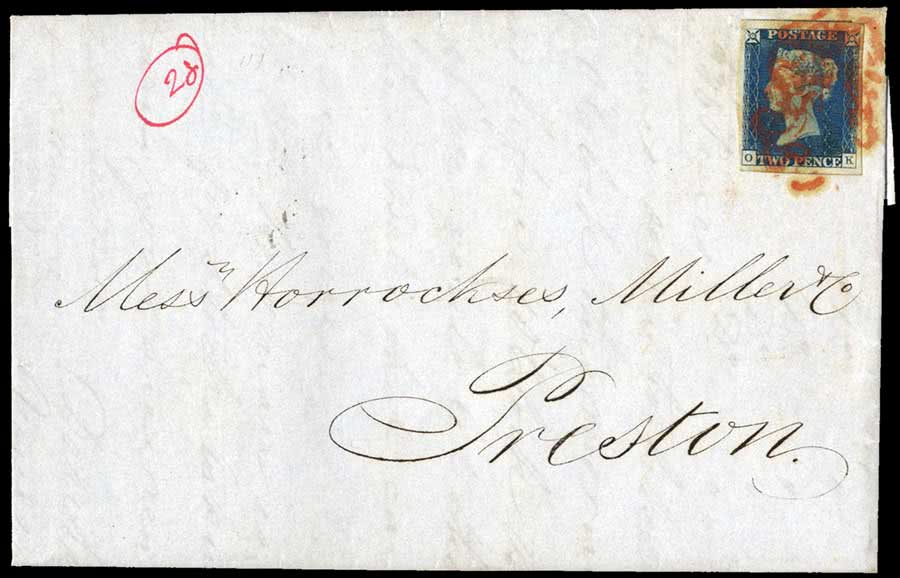 28
POSTAGE
O TWO PENCE K
Messrs Horrockses, Miller & Co
Preston.